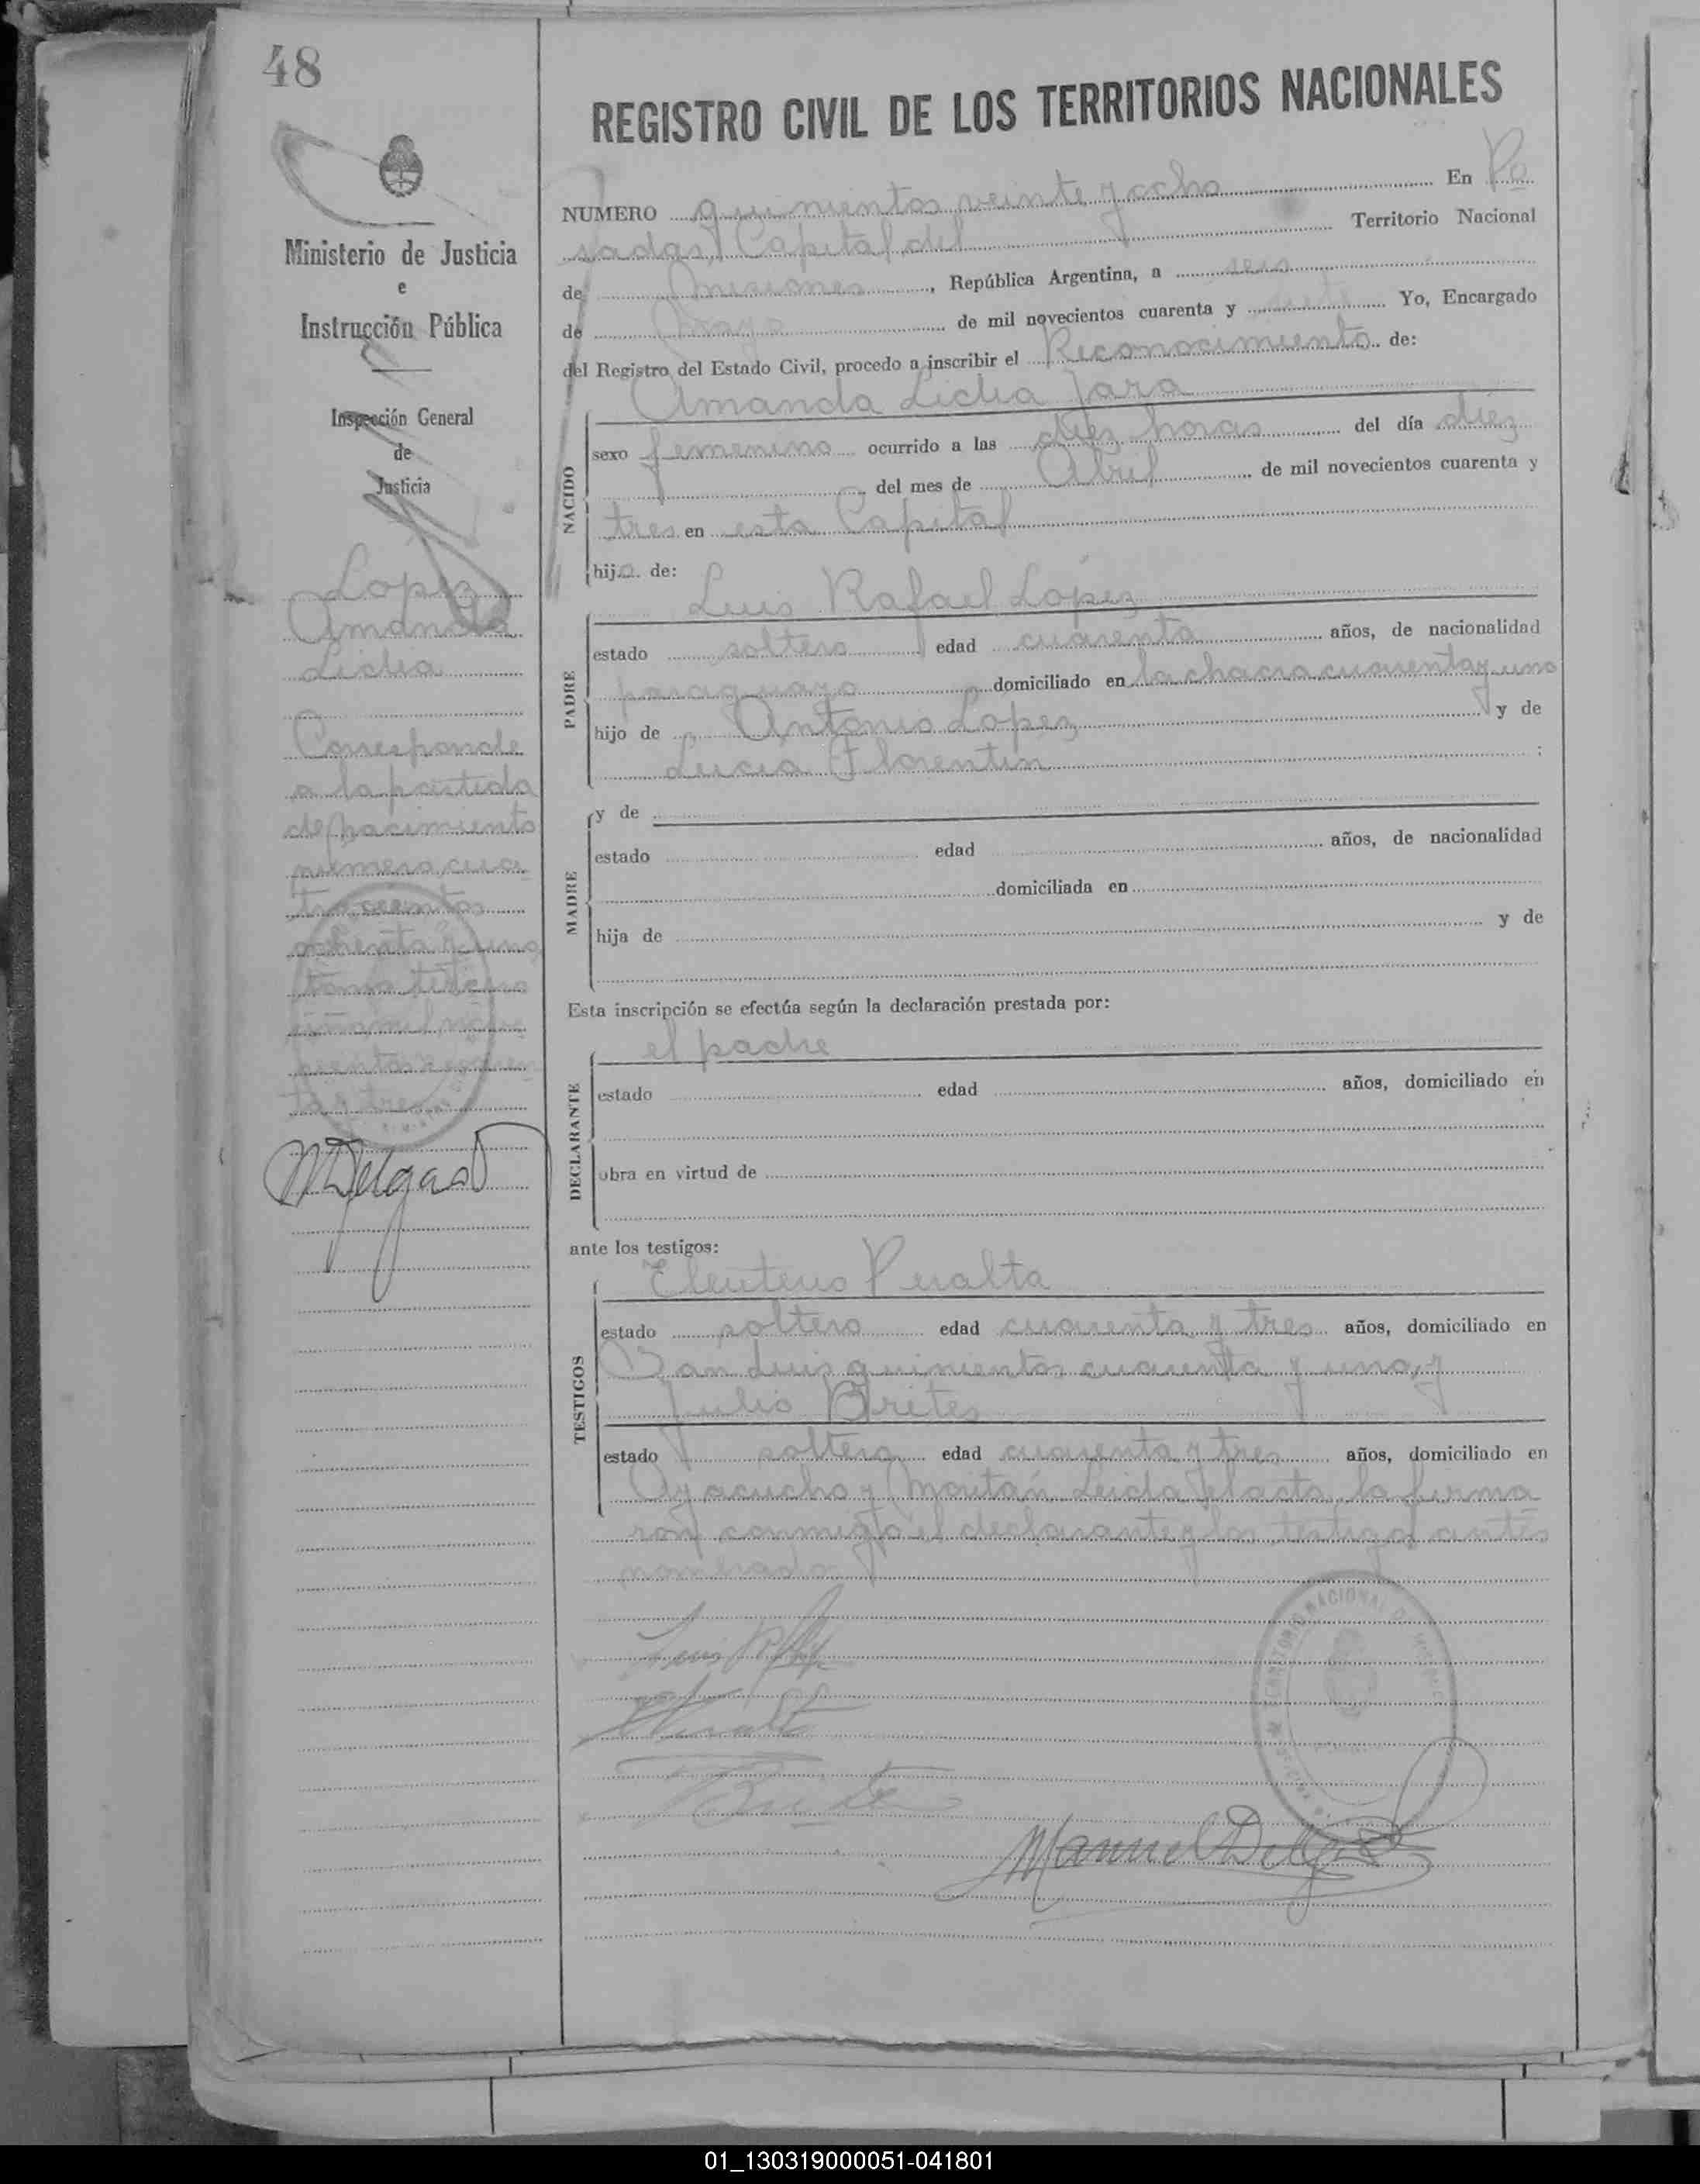 48
REGISTRO CIVIL DE LOS TERRITORIOS NACIONALES
Ministerio de Justicia
e
Instrucción Pública
Inspección General
de
Justicia
Lopez
Amanda
Lidia
Corresponde
a la partida
de nacimiento
número cua
trocientos
ochenta y uno
tomo tercero
mil nove
cientos cuaren
ta y tres
MDelgado
NUMERO quinientos veinte y ocho En Po
sadas, Capital del Territorio Nacional
de Misiones, República Argentina, a seis
de Mayo de mil novecientos cuarenta y siete Yo, Encargado
del Registro del Estado Civil, procedo a inscribir el Reconocimiento de:
Amanda Lidia Jara
NACIDO
sexo femenino ocurrido a las diez horas del día diez
del mes de Abril de mil novecientos cuarenta y
tres en esta Capital
hija de:
Luis Rafael López
PADRE
estado soltero edad cuarenta años, de nacionalidad
paraguayo domiciliado en la chacra cuarenta y uno
hijo de Antonio Lopez y de
Lucia Florentin :
MADRE
y de
estado edad años, de nacionalidad
domiciliada en
hija de y de
Esta inscripción se efectúa según la declaración prestada por:
el padre
DECLARANTE
estado edad años, domiciliado en
obra en virtud de
ante los testigos:
Eleuterio Peralta
TESTIGOS
estado soltero edad cuarenta y tres años, domiciliado en
San Luis quinientos cuarenta y uno, y
Julio Brites
estado soltero edad cuarenta y tres años, domiciliado en
Ayacucho y Moritán Leida el acta, la firma
ron conmigo el declarante y los testigos antes
nombrados
Manuel Delgado
01_130319000051-041801